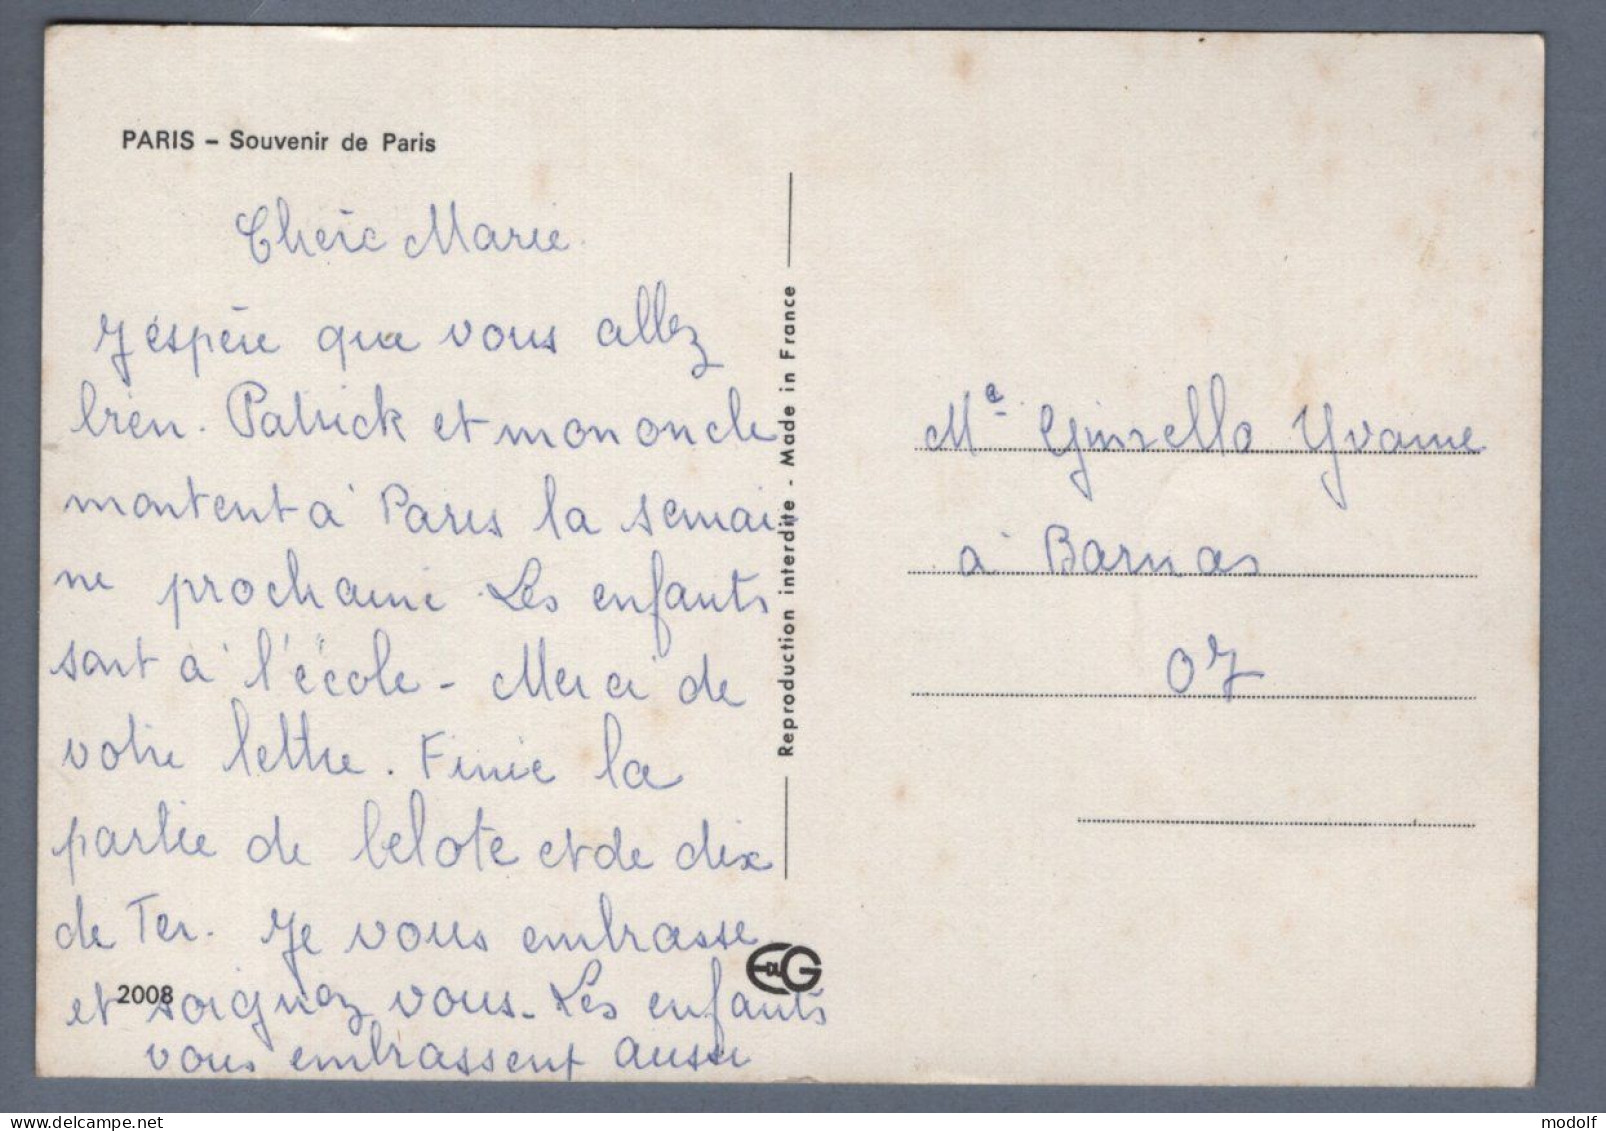 PARIS – Souvenir de Paris
Chère Marie
J'espère que vous allez
bien. Patrick et mon oncle
montent à Paris la semai-
ne prochaine. Les enfants
sont à l'école - Merci de
votre lettre. Finie la
partie de belote et de dix
de Ter. Je vous embrasse
et soignez vous. Les enfants
vous embrassent aussi
2008
Reproduction interdite - Made in France
EDUG
Me Yvonne
à Barnas
07
www.delcampe.net
modolf